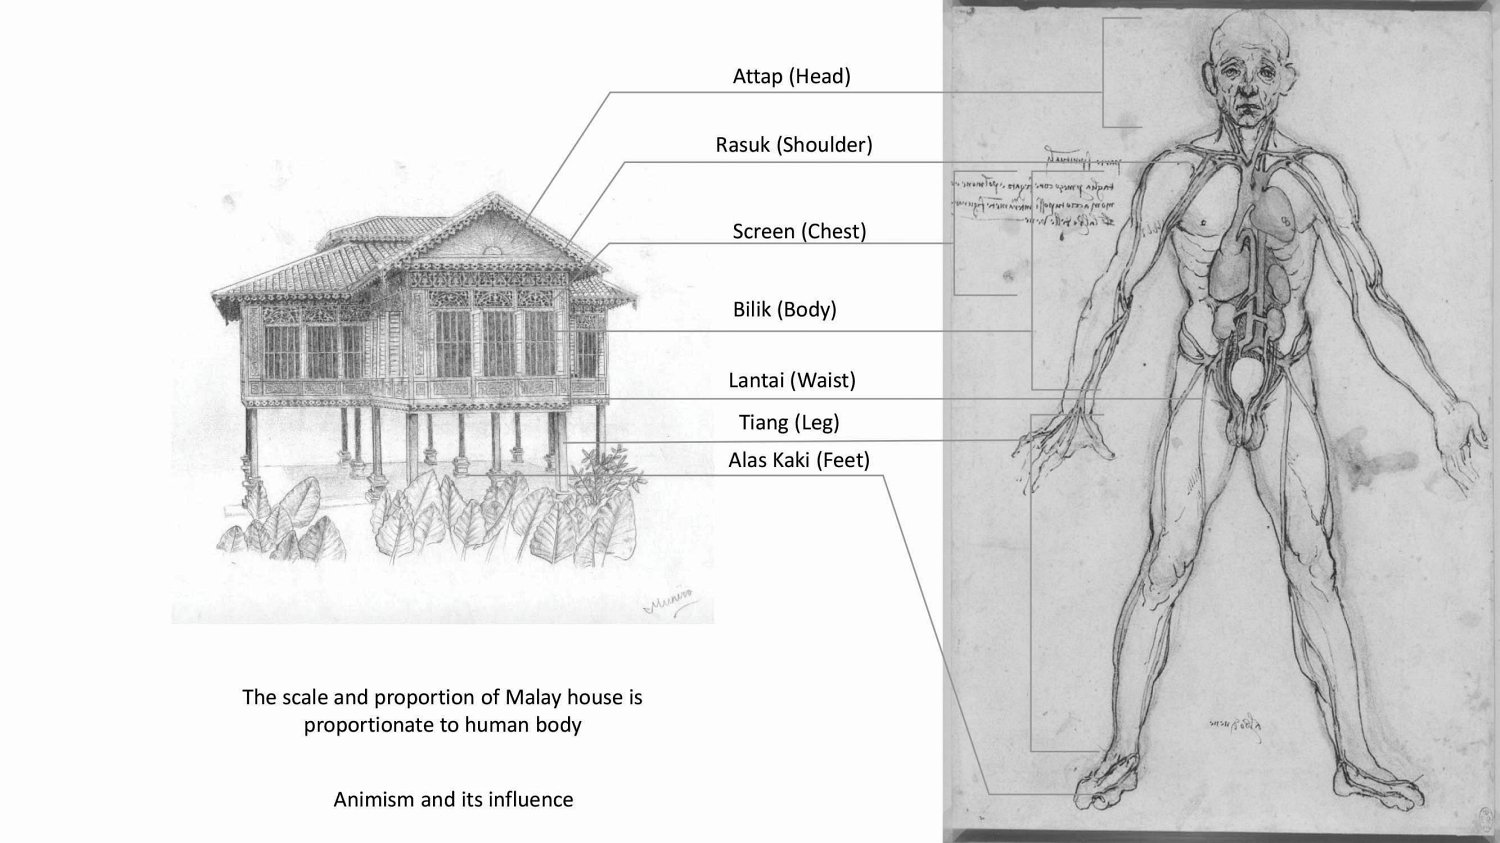 Attap (Head)
Rasuk (Shoulder)
Screen (Chest)
Bilik (Body)
Lantai (Waist)
Tiang (Leg)
Alas Kaki (Feet)
The scale and proportion of Malay house is
proportionate to human body
Animism and its influence